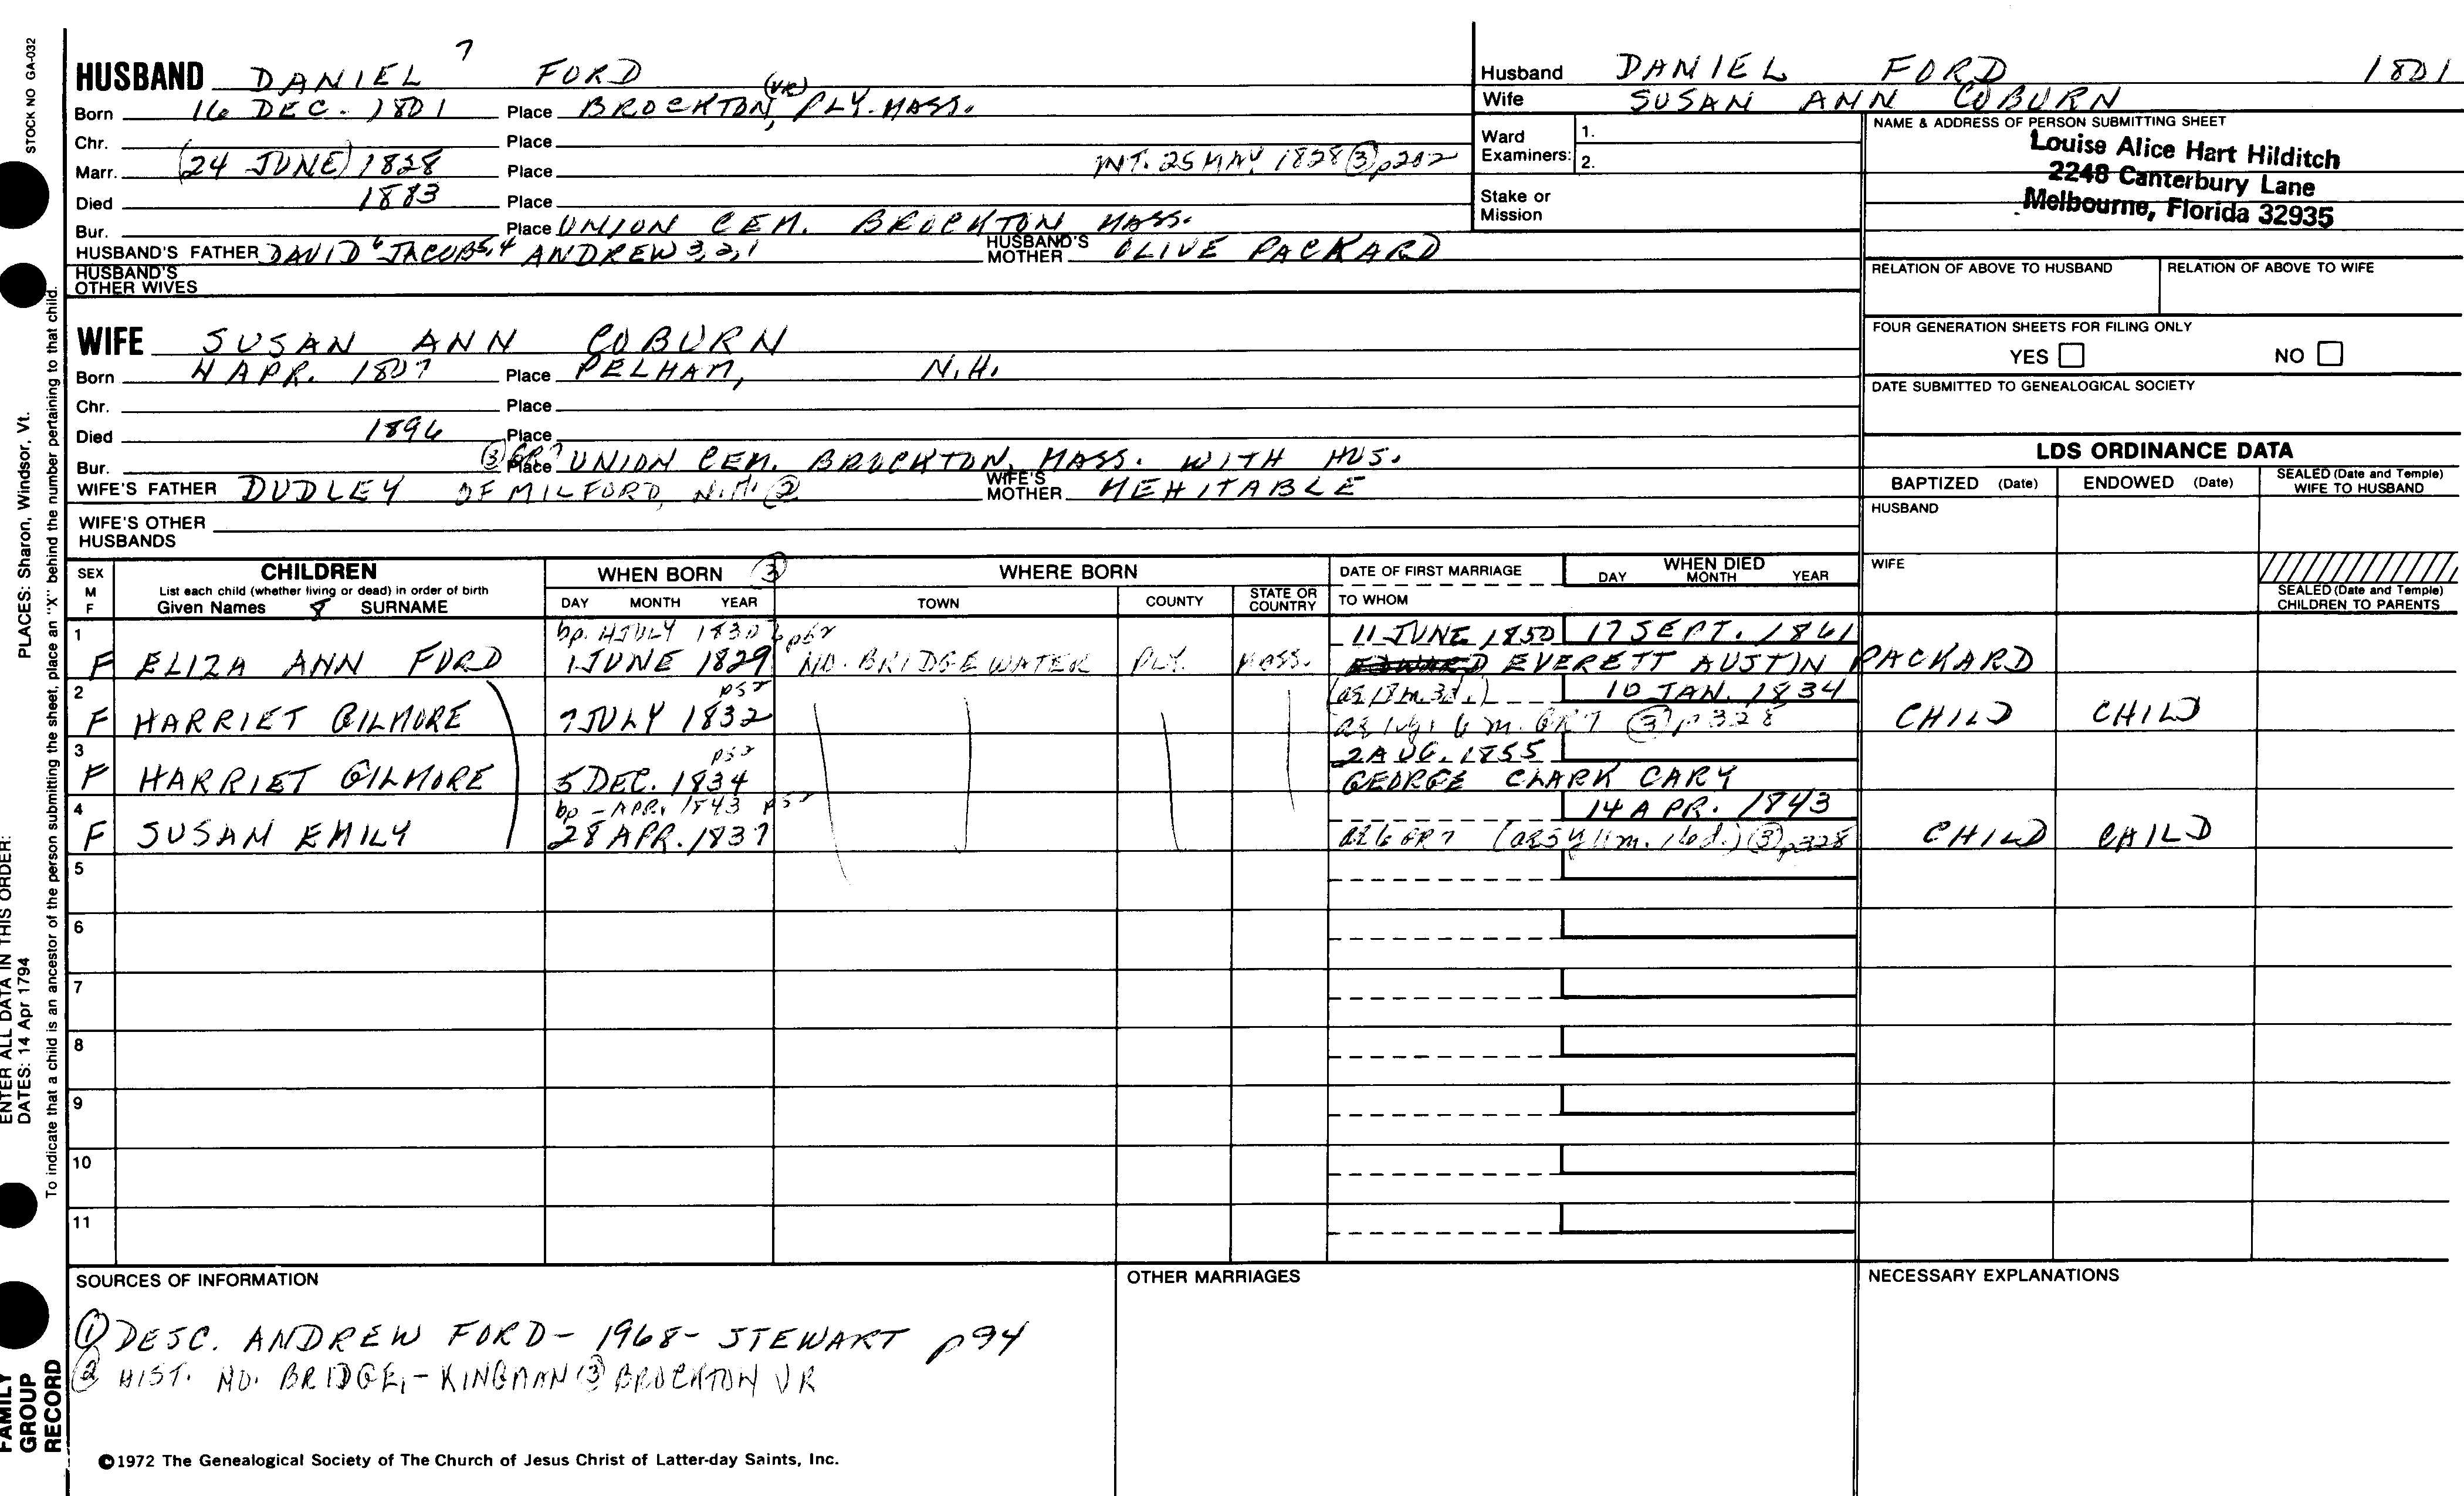 STOCK NO GA-032
PLACES: Sharon, Windsor, Vt.
ENTER ALL DATA IN THIS ORDER:
DATES: 14 Apr 1794
To indicate that a child is an ancestor of the person submitting the sheet, place an "X" behind the number pertaining to that child.
FAMILY
GROUP
RECORD
7
HUSBAND DANIEL FORD
(VR)
Born 16 DEC. 1801 Place BROCKTON, PLY. MASS.
Chr. Place
Marr. (24 JUNE) 1828 Place INT. 25 MAY 1828 (3) p202
Died 1883 Place
Bur. Place UNION CEM. BROCKTON MASS.
HUSBAND'S FATHER DAVID 6 JACOB 5,4 ANDREW 3,2,1 HUSBAND'S MOTHER OLIVE PACKARD
HUSBAND'S
OTHER WIVES
WIFE SUSAN ANN COBURN
Born 4 APR. 1807 Place PELHAM, N.H.
Chr. Place
Died 1896 Place
Bur. (3) GR7 Place UNION CEM. BROCKTON, MASS. WITH HUS.
WIFE'S FATHER DUDLEY OF MILFORD, N.H. (2) WIFE'S MOTHER MEHITABLE
WIFE'S OTHER
HUSBANDS
Husband DANIEL FORD 1801
Wife SUSAN ANN COBURN
Ward
Examiners:
1.
2.
Stake or
Mission
NAME & ADDRESS OF PERSON SUBMITTING SHEET
Louise Alice Hart Hilditch
2248 Canterbury Lane
Melbourne, Florida 32935
RELATION OF ABOVE TO HUSBAND RELATION OF ABOVE TO WIFE
FOUR GENERATION SHEETS FOR FILING ONLY
YES NO
DATE SUBMITTED TO GENEALOGICAL SOCIETY
LDS ORDINANCE DATA
BAPTIZED (Date) ENDOWED (Date) SEALED (Date and Temple) WIFE TO HUSBAND
HUSBAND
WIFE
SEALED (Date and Temple)
CHILDREN TO PARENTS
SEX
M
F
CHILDREN
List each child (whether living or dead) in order of birth
Given Names SURNAME
WHEN BORN (3)
DAY MONTH YEAR
WHERE BORN
TOWN COUNTY STATE OR COUNTRY
DATE OF FIRST MARRIAGE
TO WHOM
WHEN DIED
DAY MONTH YEAR
1 bp. 4 JULY 1830 p52 11 JUNE 1850 17 SEPT. 1861
F ELIZA ANN FORD 1 JUNE 1829 NO. BRIDGEWATER PLY. MASS. EVERETT AUSTIN PACKARD
2 p52 10 JAN. 1834
F HARRIET GILMORE 7 JULY 1832 GR7 (3) p328 CHILD CHILD
3 p52 2 AUG. 1855
F HARRIET GILMORE 5 DEC. 1834 GEORGE CLARK CARY
4 bp - APR. 1843 p52 14 APR. 1843
F SUSAN EMILY 28 APR. 1837 ae 6 GR7 (ae 5 y 11 m. 16 d.) (3) p328 CHILD CHILD
5
6
7
8
9
10
11
SOURCES OF INFORMATION
(1) DESC. ANDREW FORD - 1968 - STEWART p94
(2) HIST. NO. BRIDGE. - KINGMAN (3) BROCKTON VR
OTHER MARRIAGES
NECESSARY EXPLANATIONS
©1972 The Genealogical Society of The Church of Jesus Christ of Latter-day Saints, Inc.